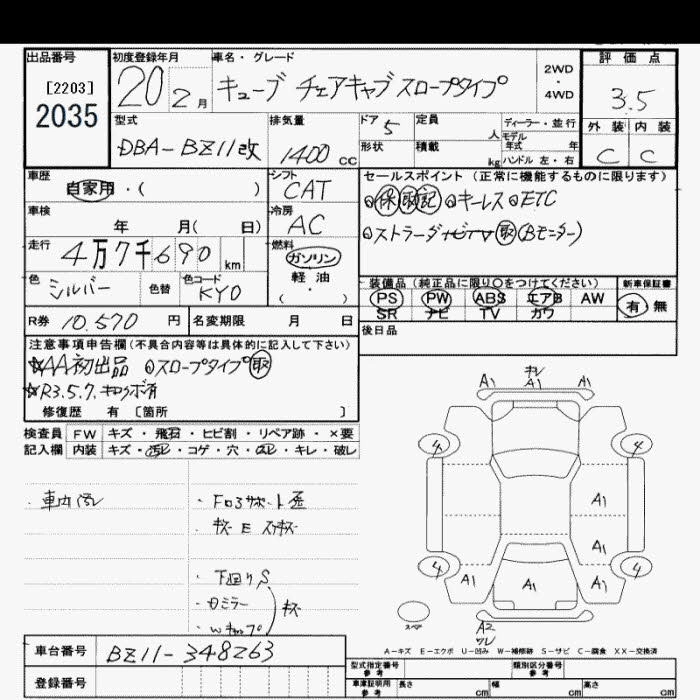 出品番号
[2203]
2035
初度登録年月
20 2月
車名・グレード
キューブ チェアキャブ スロープタイプ
2WD
・
4WD
評価点
3.5
外装 内装
C C
型式
DBA-BZ11改
排気量
1400 CC
ドア 5
形状
定員 人
積載 kg
ディーラー・並行
モデル年式 年
ハンドル 左・右
車歴
自家用・( )
シフト
CAT
セールスポイント (正常に機能するものに限ります)
保 取 記 キーレス ETC
ストラーダ TV 取 (Bモニター)
車検
年 月( 日)
冷房
AC
走行
4万7千690 km
燃料
ガソリン
軽油
・
( )
色
シルバー
色替
色コード
KY0
装備品 (純正品に限り○をつけてください)
PS PW ABS エアB AW
SR ナビ TV カワ
新車保証書
有 無
R券 10.570 円
名変期限 月 日
後日品
注意事項申告欄 (不具合内容等は具体的に記入して下さい)
☆AA初出品 スロープタイプ 取
☆R3.5.7. キロクボ有
修復歴 有 [箇所 ]
検査員 FW キズ・飛石・ヒビ割・リペア跡・×要
記入欄 内装 キズ・汚レ・コゲ・穴・スレ・キレ・破レ
・車内汚レ
・Fロアサポート歪
・キズ E スリキズ
・下回りS
・Dミラー
・Wキャップ
キズ
キレ
A1 A1 A1
4 4
A1
A1
4 4
A1 A1 A1
スペア
A2
ワレ
A-キズ E-エクボ U-凹み W-補修跡 S-サビ C-腐食 XX-交換済
車台番号 BZ11-348263
登録番号
型式指定番号
参考
類別区分番号
車庫証明用
参考
長さ cm 幅 cm 高さ cm